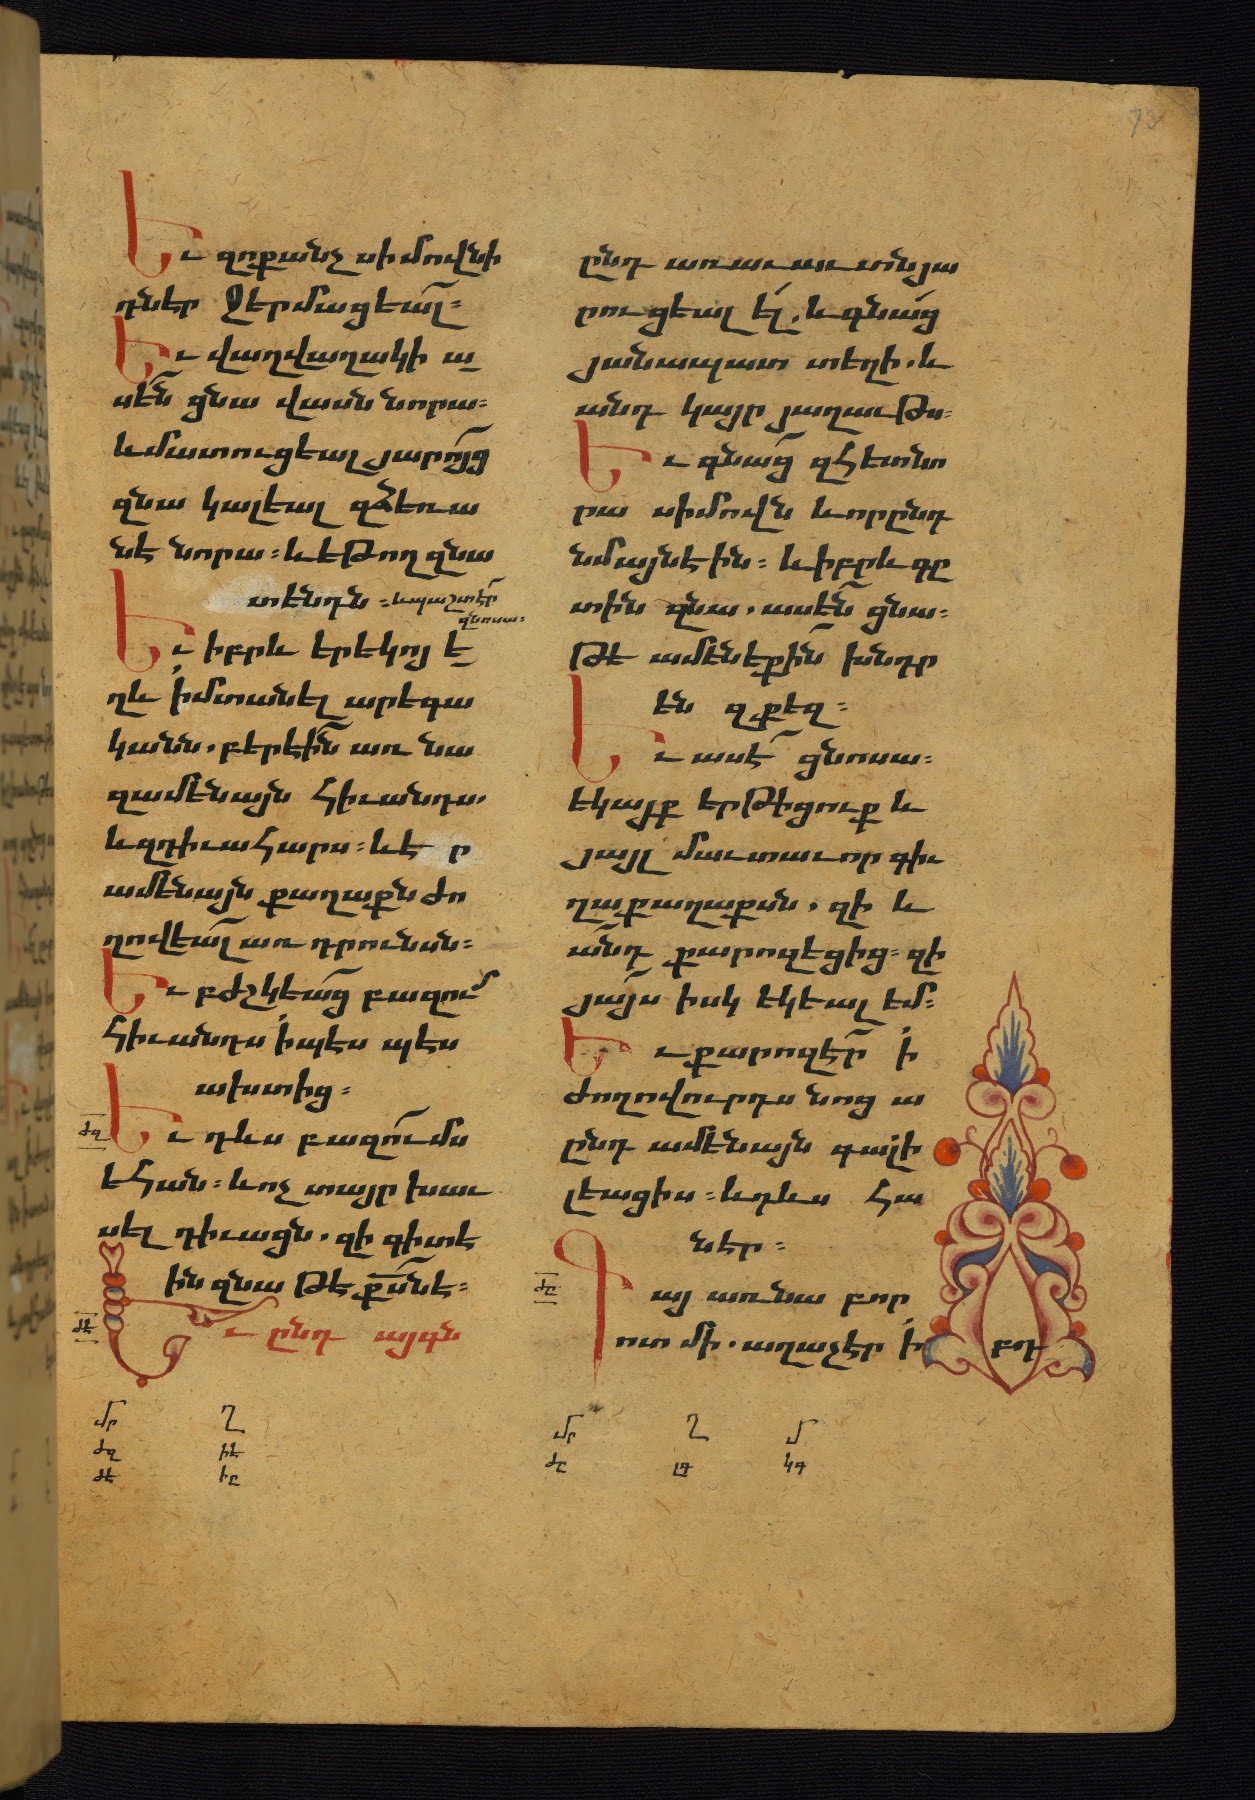 73
Եւ զոքանչ սիմովնի
դներ ջերմացեալ։
Եւ վաղվաղակի ա
սեն ցնա վասն նորա։
և մատուցեալ յարոյց
զնա կալեալ զձեռա
նէ նորա։ և եթող զնա
տենդն։ և պաշտէր
զնոսա։
Եւ իբրև երեկոյ ե
ղև ի մտանել արեգա
կանն. բերեին առ նա
զամենայն հիւանդս.
և զդիւահարս։ և է ր
ամենայն քաղաքն ժո
ղովեալ առ դրունսն։
Եւ բժշկեաց բազում
հիւանդս ի պէս պէս
ախտից։
ժզ
Եւ դևս բազումս
եհան։ և ոչ տայր խաւ
սել դիւացն. զի գիտե
ին զնա թե քսն է։
ժէ
Եւ ընդ այգն
մր Ղ
ժզ իէ
ժէ իը
ընդ առաւաւտնյա
րուցեալ էլ. և գնաց
յանապատ տեղի. և
անդ կայր յաղաւթս։
Եւ գնաց զհետնո
րա սիմովն և որընդ
նմայնեին։ և իբրև գը
տին զնա. ասեն ցնա։
թե ամենեքին խնդր
են զքեզ։
Եւ ասէ ցնոսա։
եկայք երթիցուք և
յայլ մաւտաւոր գիւ
ղաքաղաքսն. զի և
անդ քարոզեցից։ զի
յայս իսկ եկեալ եմ։
Եւ քարոզէր ի
ժողովուրդս նոց ա
ընդ ամենայն գալի
լեացիս։ և դևս հա
ներ։
ժը
Գայ առ նա բոր
ոտ մի. աղաչէր ի
բդ
մր Ղ մ
ժը լգ կգ